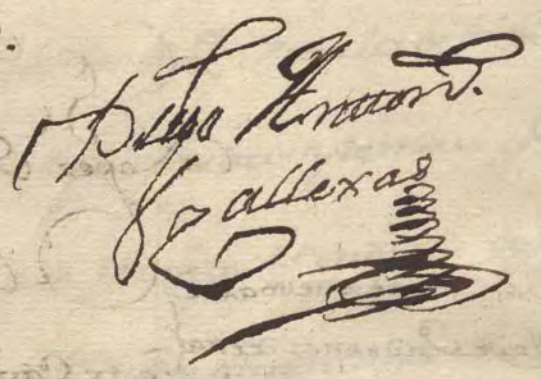 Diego Antton.º
Callexas